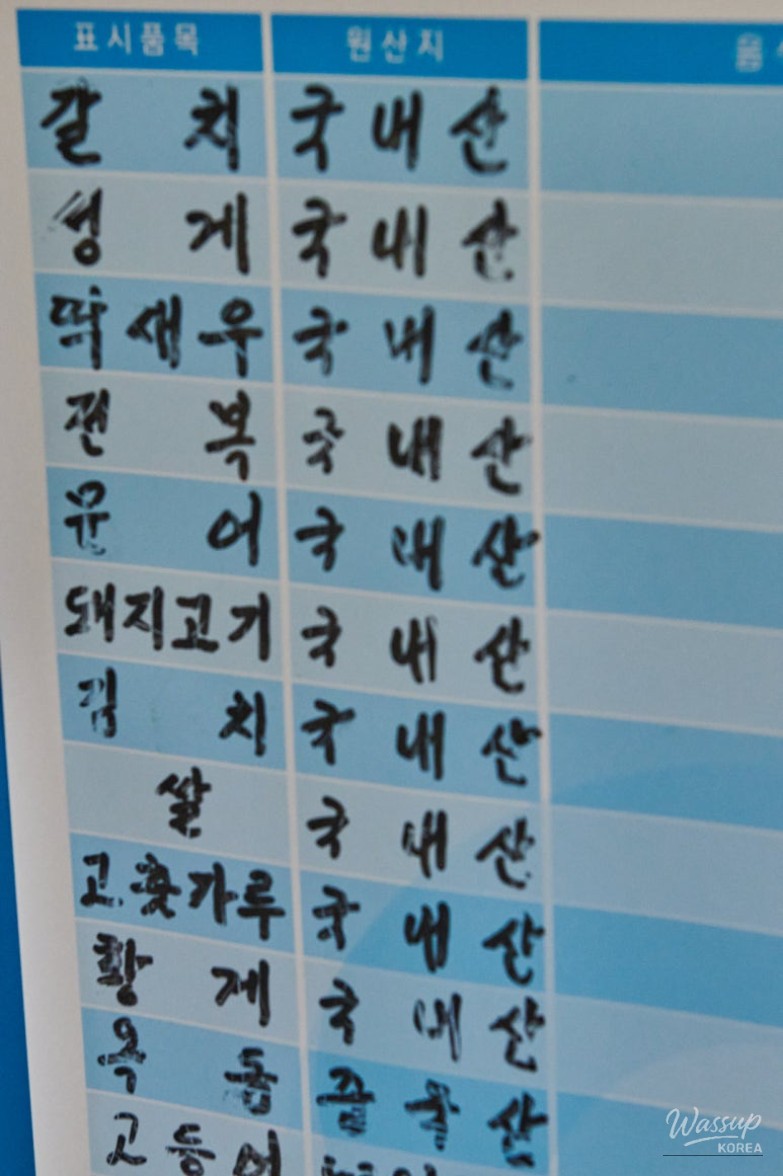 표시품목 원산지 음
갈치 국내산
성게 국내산
딱새우 국내산
전복 국내산
문어 국내산
돼지고기 국내산
김치 국내산
쌀 국내산
고춧가루 국내산
황게 국내산
옥돔 중국산
고등어
Wassup
KOREA